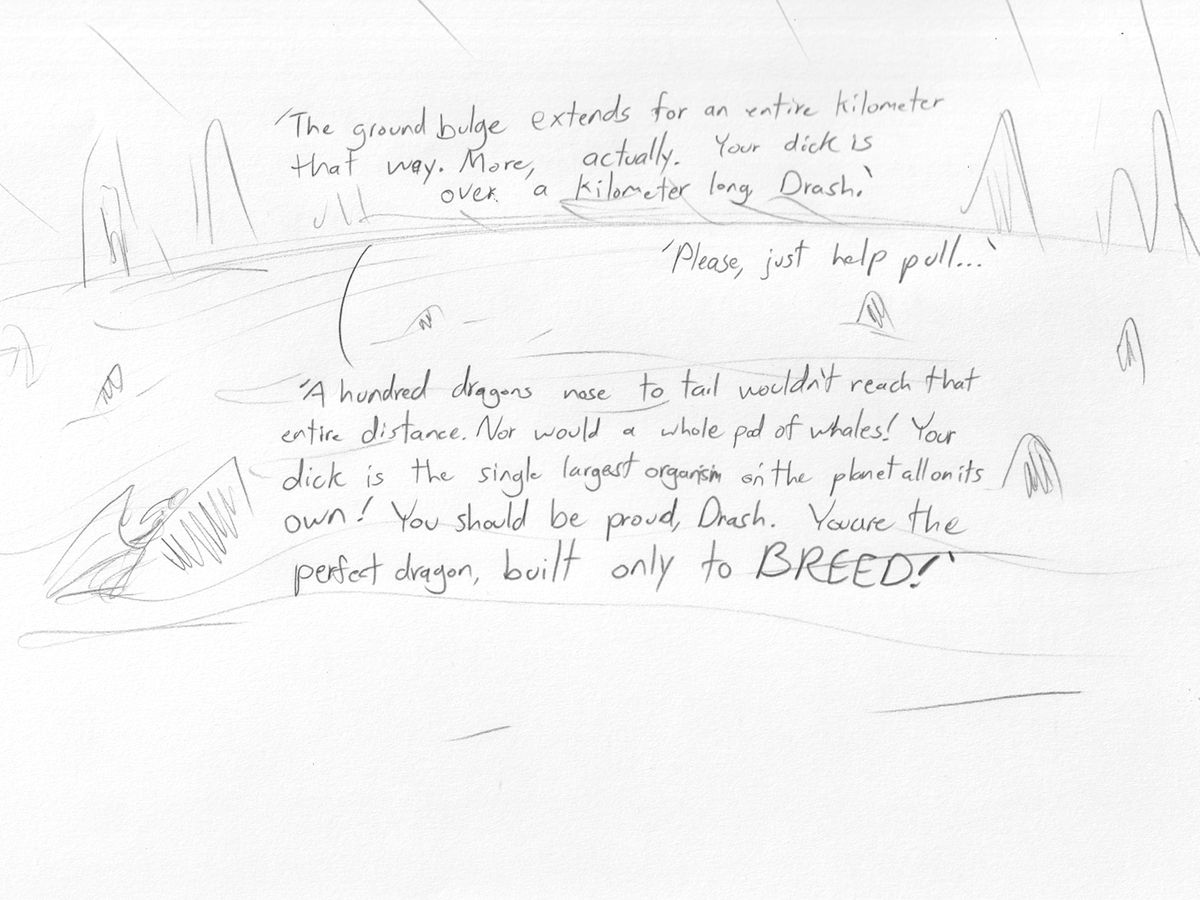 'The ground bulge extends for an entire kilometer
that way. More, actually. Your dick is
over a kilometer long, Drash.'
'Please, just help pull...'
'A hundred dragons nose to tail wouldn't reach that
entire distance. Nor would a whole pod of whales! Your
dick is the single largest organism on the planet all on its
own! You should be proud, Drash. You are the
perfect dragon, built only to BREED!'